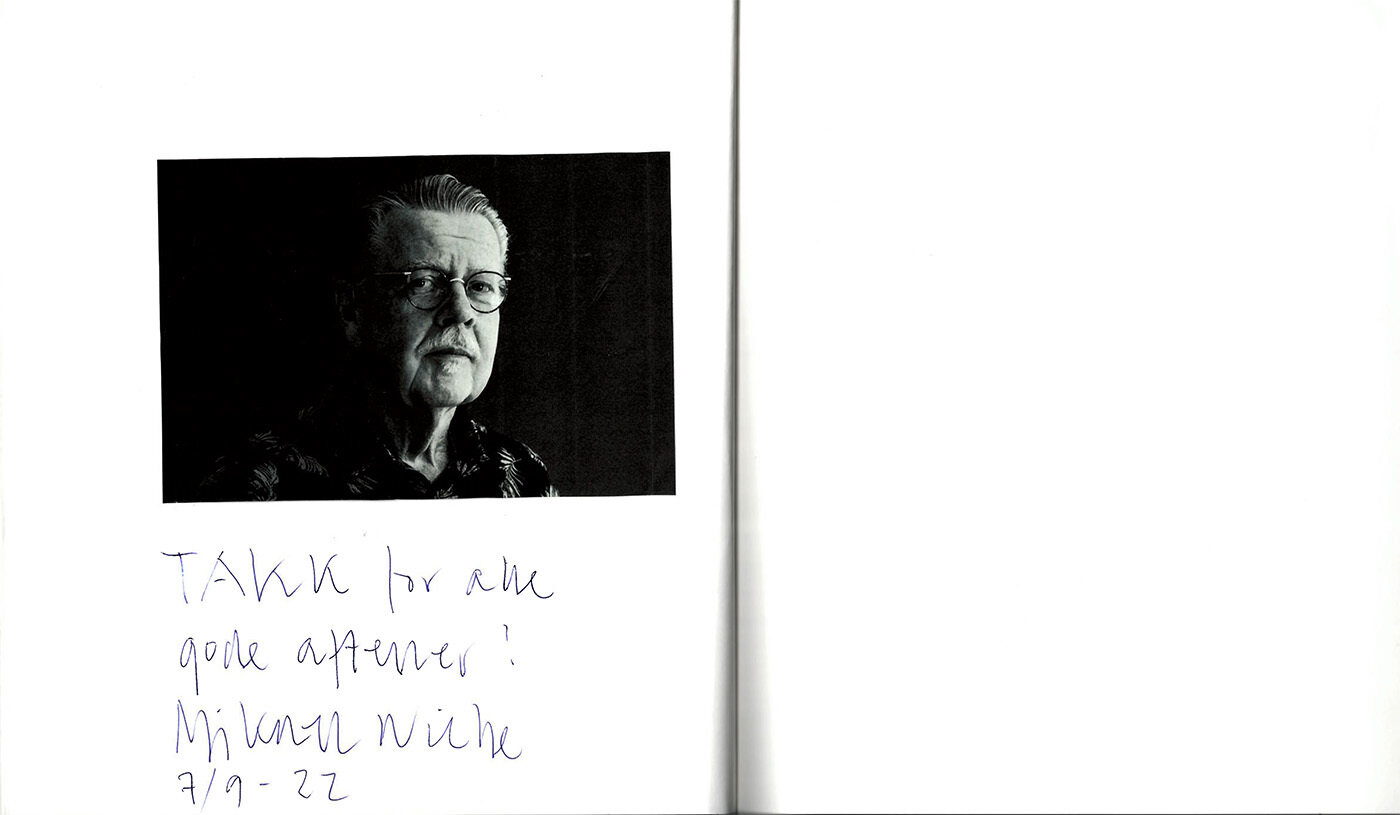 TAKK for alle
gode aftener!
Mikael Wiehe
7/9-22